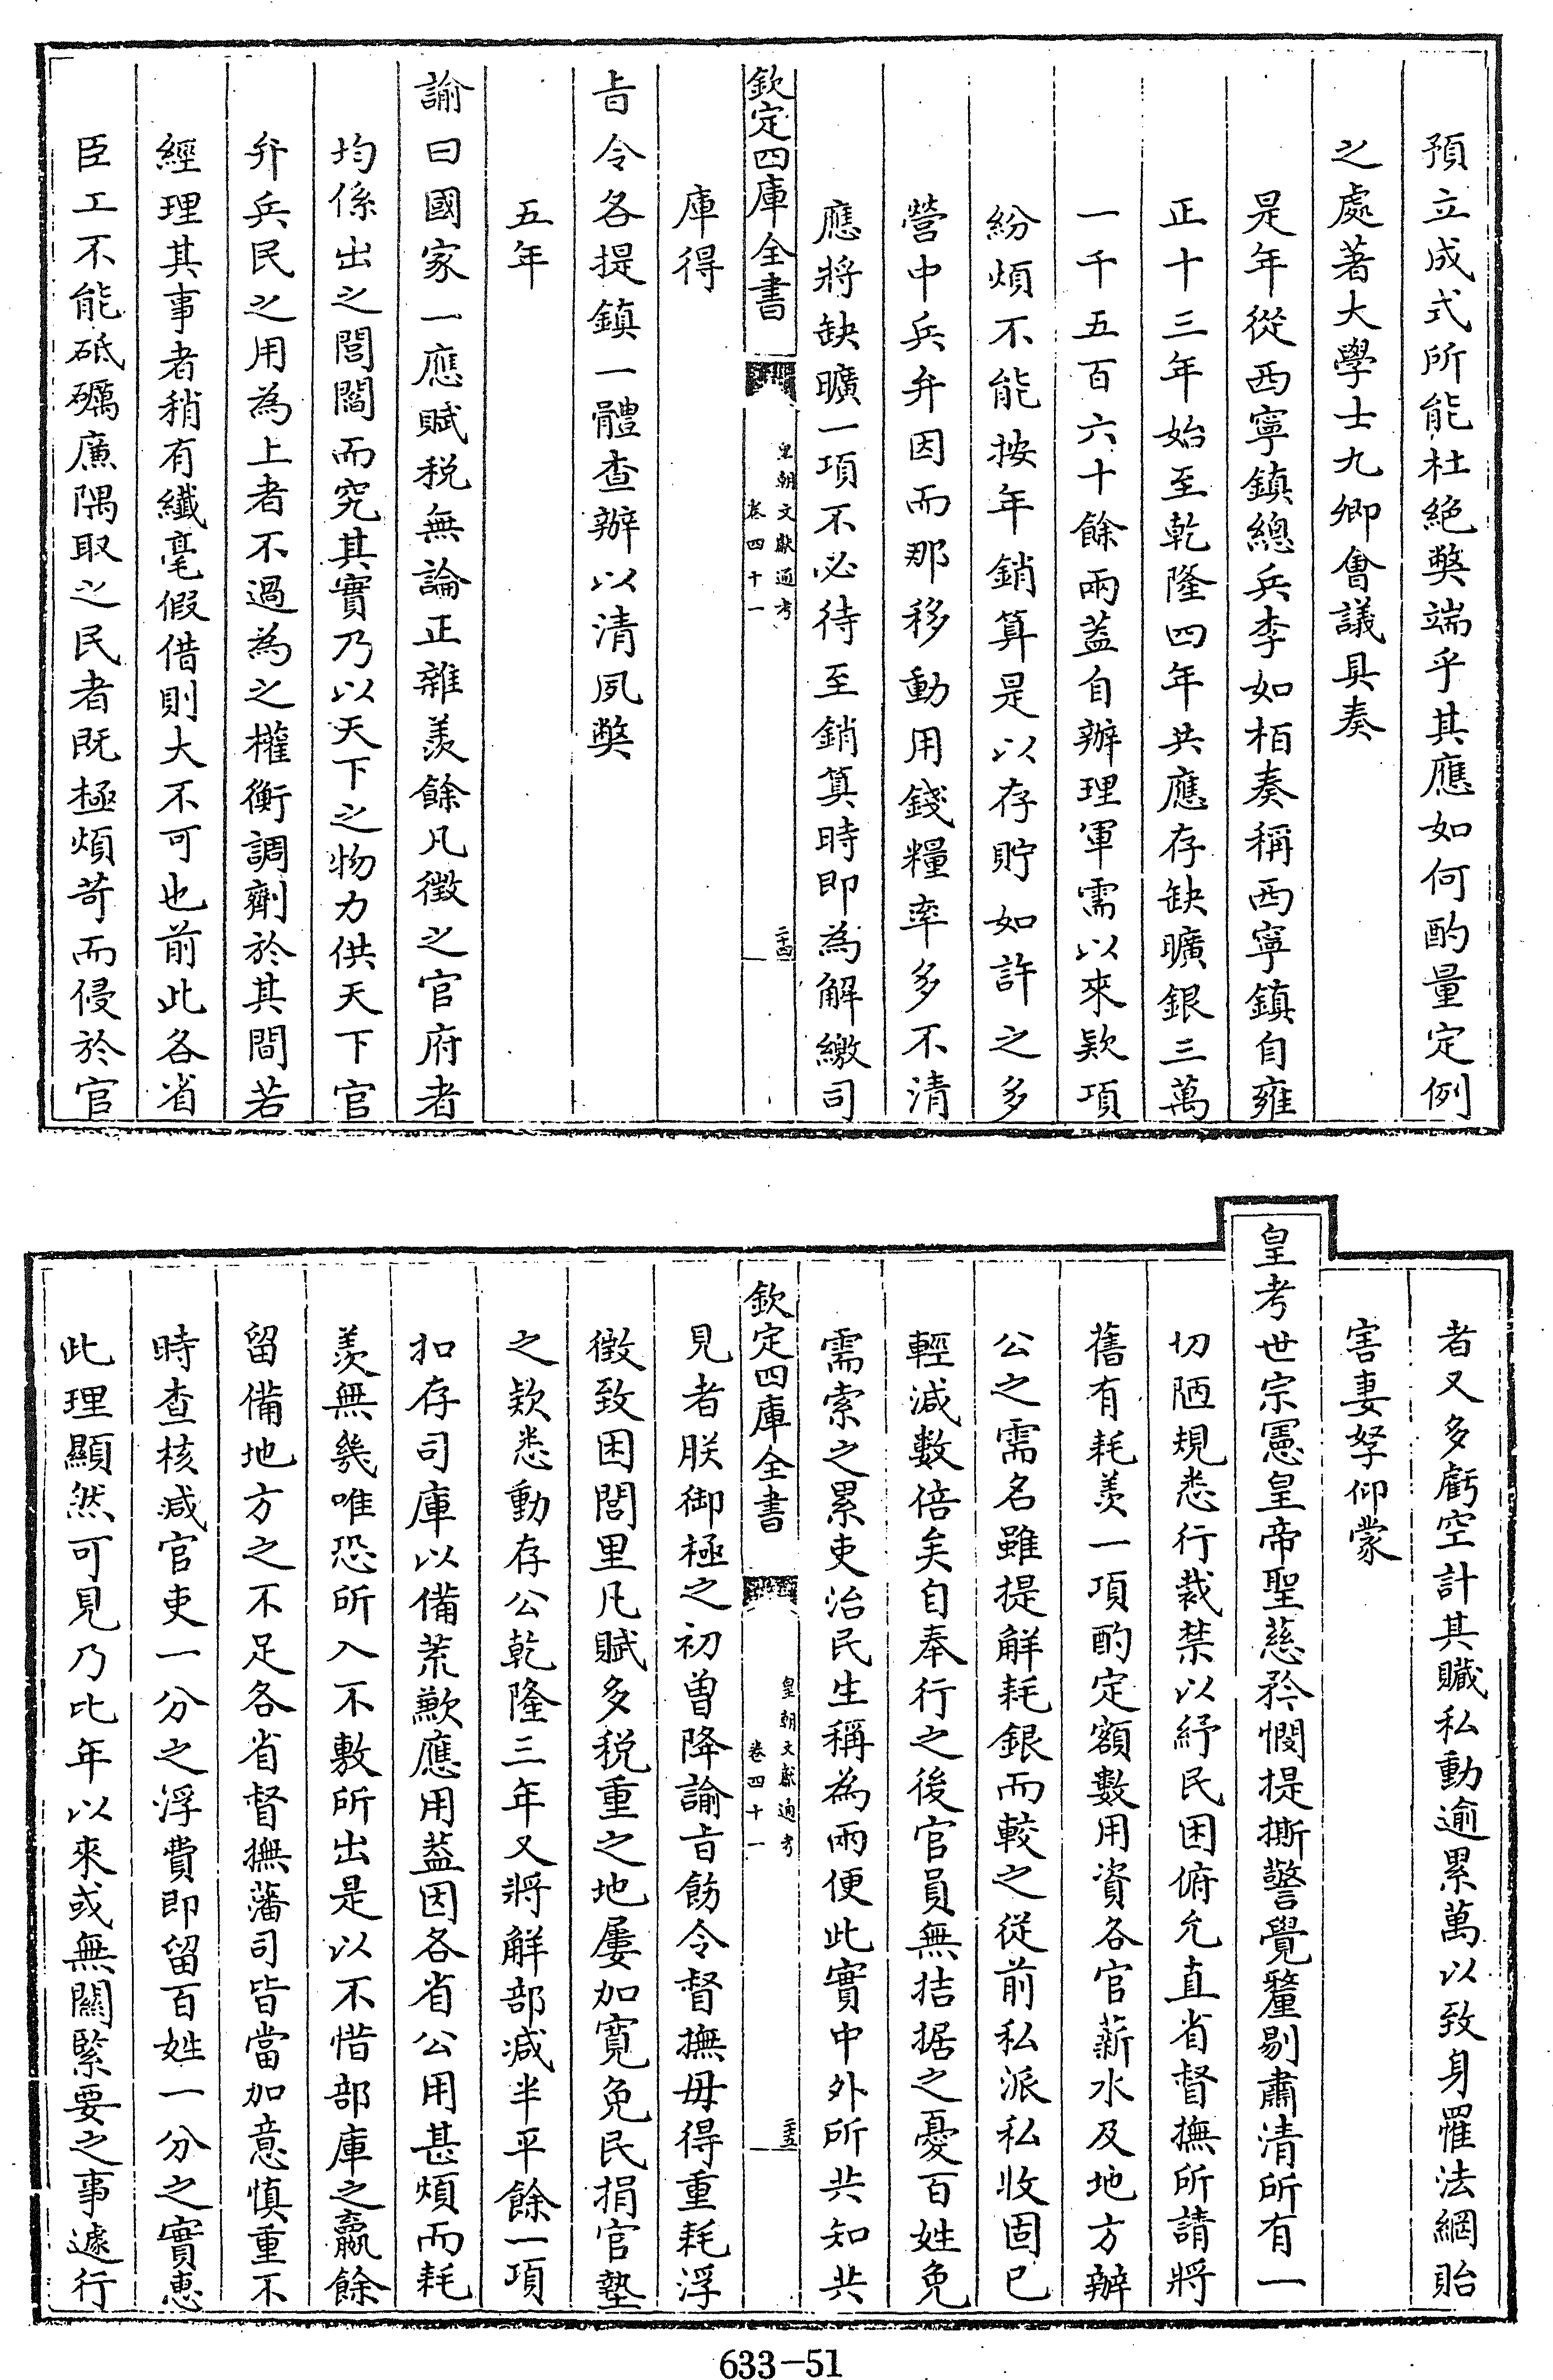 預立成式所能杜絶弊端乎其應如何酌量定例
之處著大學士九卿會議具奏
是年從西寧鎮總兵李如栢奏稱西寧鎮自雍
正十三年始至乾隆四年共應存缺曠銀三萬
一千五百六十餘兩蓋自辦理軍需以來欵項
紛煩不能按年銷算是以存貯如許之多
營中兵弁因而那移動用錢糧率多不清
應將缺曠一項不必待至銷算時即為解繳司
欽定四庫全書
皇朝文獻通考
卷四十一
二十四
庫得
旨令各提鎮一體查辦以清夙弊
五年
諭曰國家一應賦税無論正雜羨餘凡徵之官府者
均係出之閭閻而究其實乃以天下之物力供天下官
弁兵民之用為上者不過為之權衡調劑於其間若
經理其事者稍有纖毫假借則大不可也前此各省
臣工不能砥礪廉隅取之民者既極煩苛而侵於官
者又多虧空計其贓私動逾累萬以致身罹法網貽
害妻孥仰蒙
皇考世宗憲皇帝聖慈矜憫提撕警覺釐剔肅清所有一
切陋規悉行裁禁以紓民困俯允直省督撫所請將
舊有耗羨一項酌定額數用資各官薪水及地方辦
公之需名雖提解耗銀而較之從前私派私收固已
輕減數倍矣自奉行之後官員無拮据之憂百姓免
需索之累吏治民生稱為兩便此實中外所共知共
欽定四庫全書
皇朝文獻通考
卷四十一
二十五
見者朕御極之初曾降諭旨飭令督撫毋得重耗浮
徵致困閭里凡賦多税重之地屢加寛免民捐官墊
之欵悉動存公乾隆三年又將解部減半平餘一項
扣存司庫以備荒歉應用蓋因各省公用甚煩而耗
羨無幾唯恐所入不敷所出是以不惜部庫之贏餘
留備地方之不足各省督撫藩司皆當加意慎重不
時查核減官吏一分之浮費即留百姓一分之實惠
此理顯然可見乃比年以來或無關緊要之事遽行
633-51